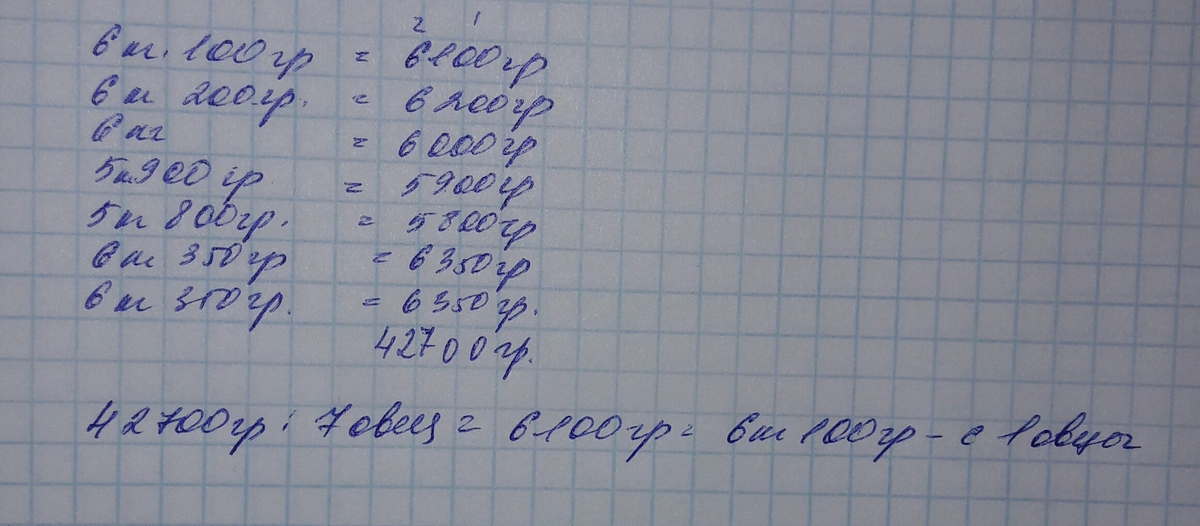 2 1
6 кг. 100 гр = 6100 гр
6 кг 200 гр. = 6200 гр
6 кг = 6000 гр
5 кг 900 гр = 5900 гр
5 кг 800 гр. = 5800 гр
6 кг 350 гр = 6350 гр
6 кг 350 гр. = 6350 гр.
42700 гр.
42700 гр : 7 овец = 6100 гр = 6 кг 100 гр - с 1 овцы